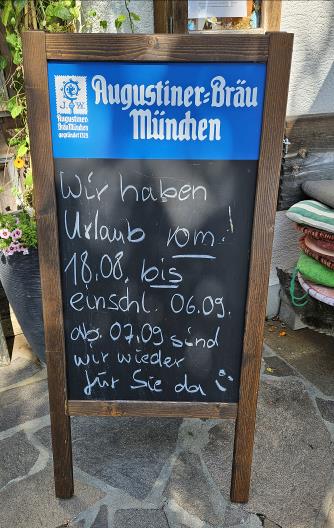 J.W.
Augustiner
Bräu München
gegründet 1328
Augustiner=Bräu
München
Wir haben
Urlaub vom!
18.08. bis
einschl. 06.09.
ab. 07.09 sind
wir wieder
für Sie da :)